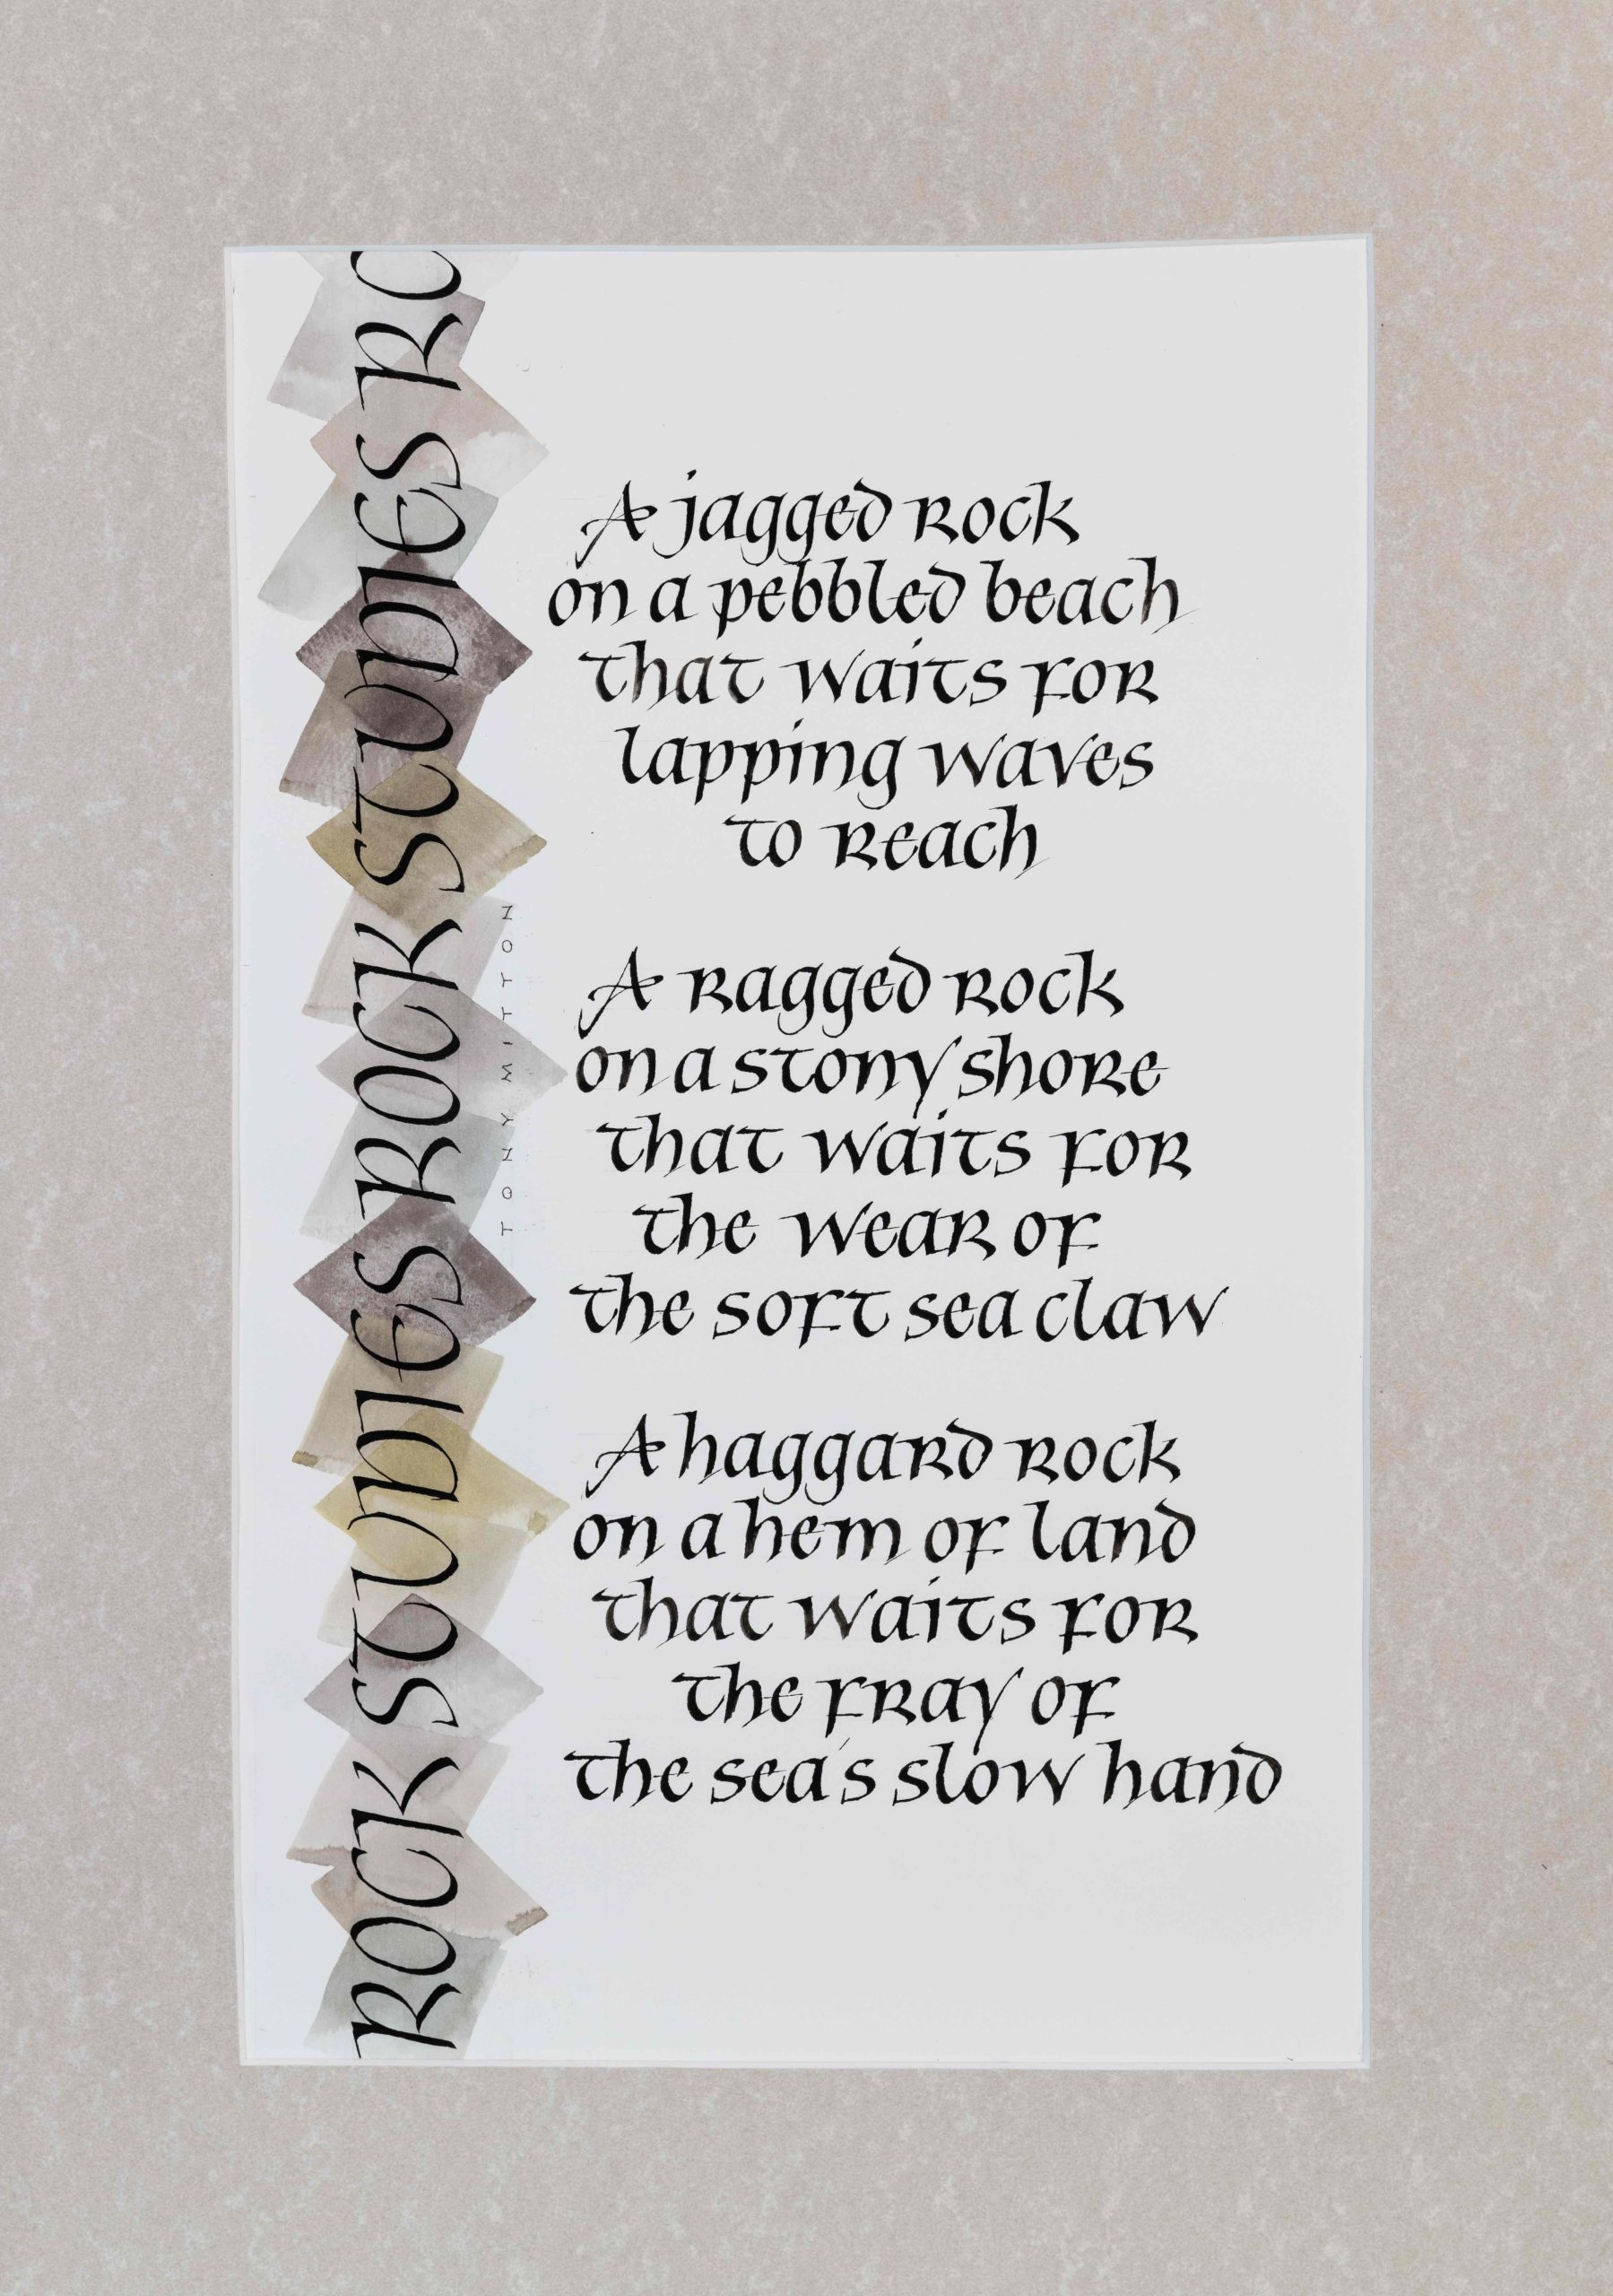 ROCK STUDIES ROCK STUDIES RO
TONY MITTON
A jagged rock
on a pebbled beach
that waits for
lapping waves
to reach
A ragged rock
on a stony shore
that waits for
the wear of
the soft sea claw
A haggard rock
on a hem of land
that waits for
the fray of
the sea's slow hand